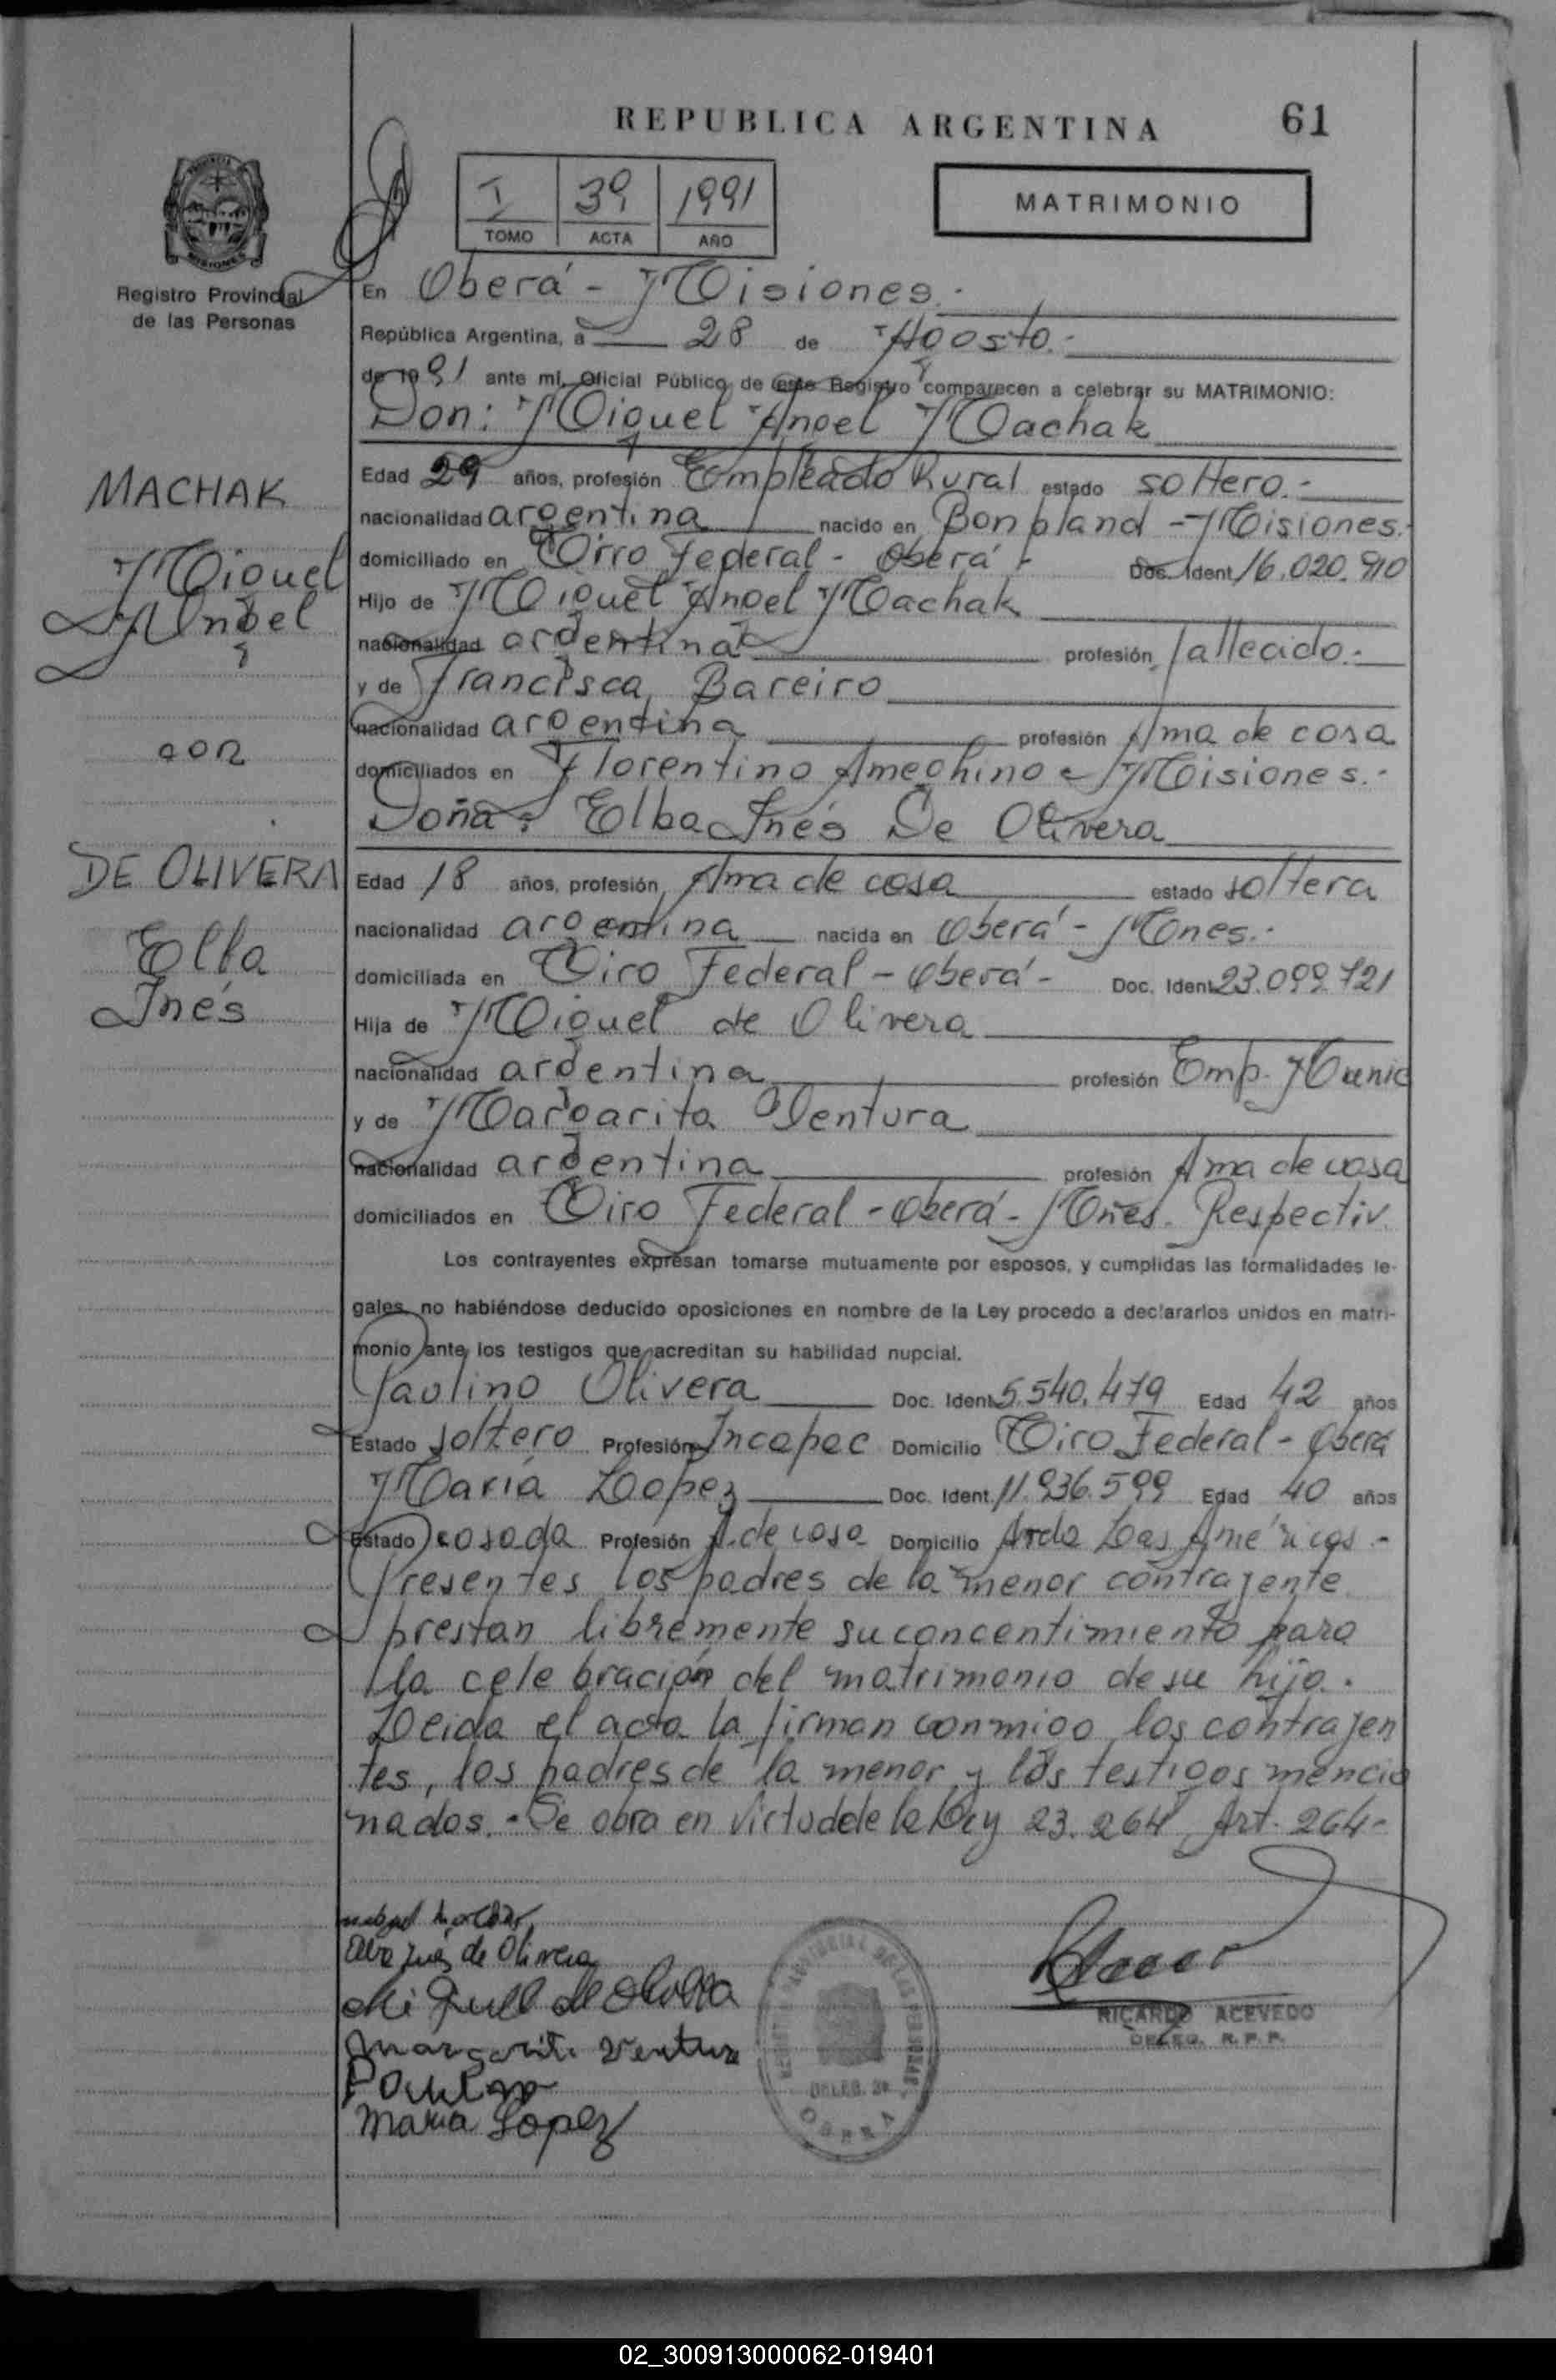 REPUBLICA ARGENTINA 61
I 39 1991
TOMO ACTA AÑO
MATRIMONIO
Registro Provincial
de las Personas
En Oberá - Misiones.-
República Argentina, a 28 de Agosto.-
de 1991 ante mi, Oficial Público de este Registro comparecen a celebrar su MATRIMONIO:
Don: Miguel Angel Machak
Edad 29 años, profesión Empleado Rural estado soltero.-
nacionalidad argentina nacido en Bonpland - Misiones.-
domiciliado en Tiro Federal - Oberá - Doc. Ident. 16.020.910
Hijo de Miguel Angel Machak
nacionalidad argentina profesión fallecido.-
y de Francisca Bareiro
nacionalidad argentina profesión Ama de casa
domiciliados en Florentino Ameghino - Misiones.-
Doña: Elba Inés De Olivera
Edad 18 años, profesión Ama de casa estado soltera
nacionalidad argentina nacida en Oberá - Mnes.-
domiciliada en Tiro Federal - Oberá - Doc. Ident. 23.099.721
Hija de Miguel de Olivera
nacionalidad argentina profesión Emp. Munic
y de Margarita Ventura
nacionalidad argentina profesión Ama de casa
domiciliados en Tiro Federal - Oberá - Mnes. Respectiv.
Los contrayentes expresan tomarse mutuamente por esposos, y cumplidas las formalidades le-
gales no habiéndose deducido oposiciones en nombre de la Ley procedo a declararlos unidos en matri-
monio ante los testigos que acreditan su habilidad nupcial.
Paulino Olivera Doc. Ident. 5.540.479 Edad 42 años
Estado soltero Profesión Incapac Domicilio Tiro Federal - Oberá
María Lopez Doc. Ident. 11.936.599 Edad 40 años
Estado casada Profesión A. de casa Domicilio Avda Las Américas.-
Presentes los padres de la menor contrayente
prestan libremente su concentimiento para
la celebración del matrimonio de su hija.
Leida el acta la firman conmigo los contrayen
tes, los padres de la menor y los testigos mencio
nados.- Se obra en virtud de la Ley 23.264 Art. 264-
MACHAK
Miguel
Angel
con
DE OLIVERA
Elba
Inés
Elba Inés de Olivera
Miguel de Olivera
Margarita Ventura
Paulino
Maria Lopez
RICARDO ACEVEDO
DELEG. R. P. P.
REGISTRO PROVINCIAL DE LAS PERSONAS
OBERA
02_300913000062-019401